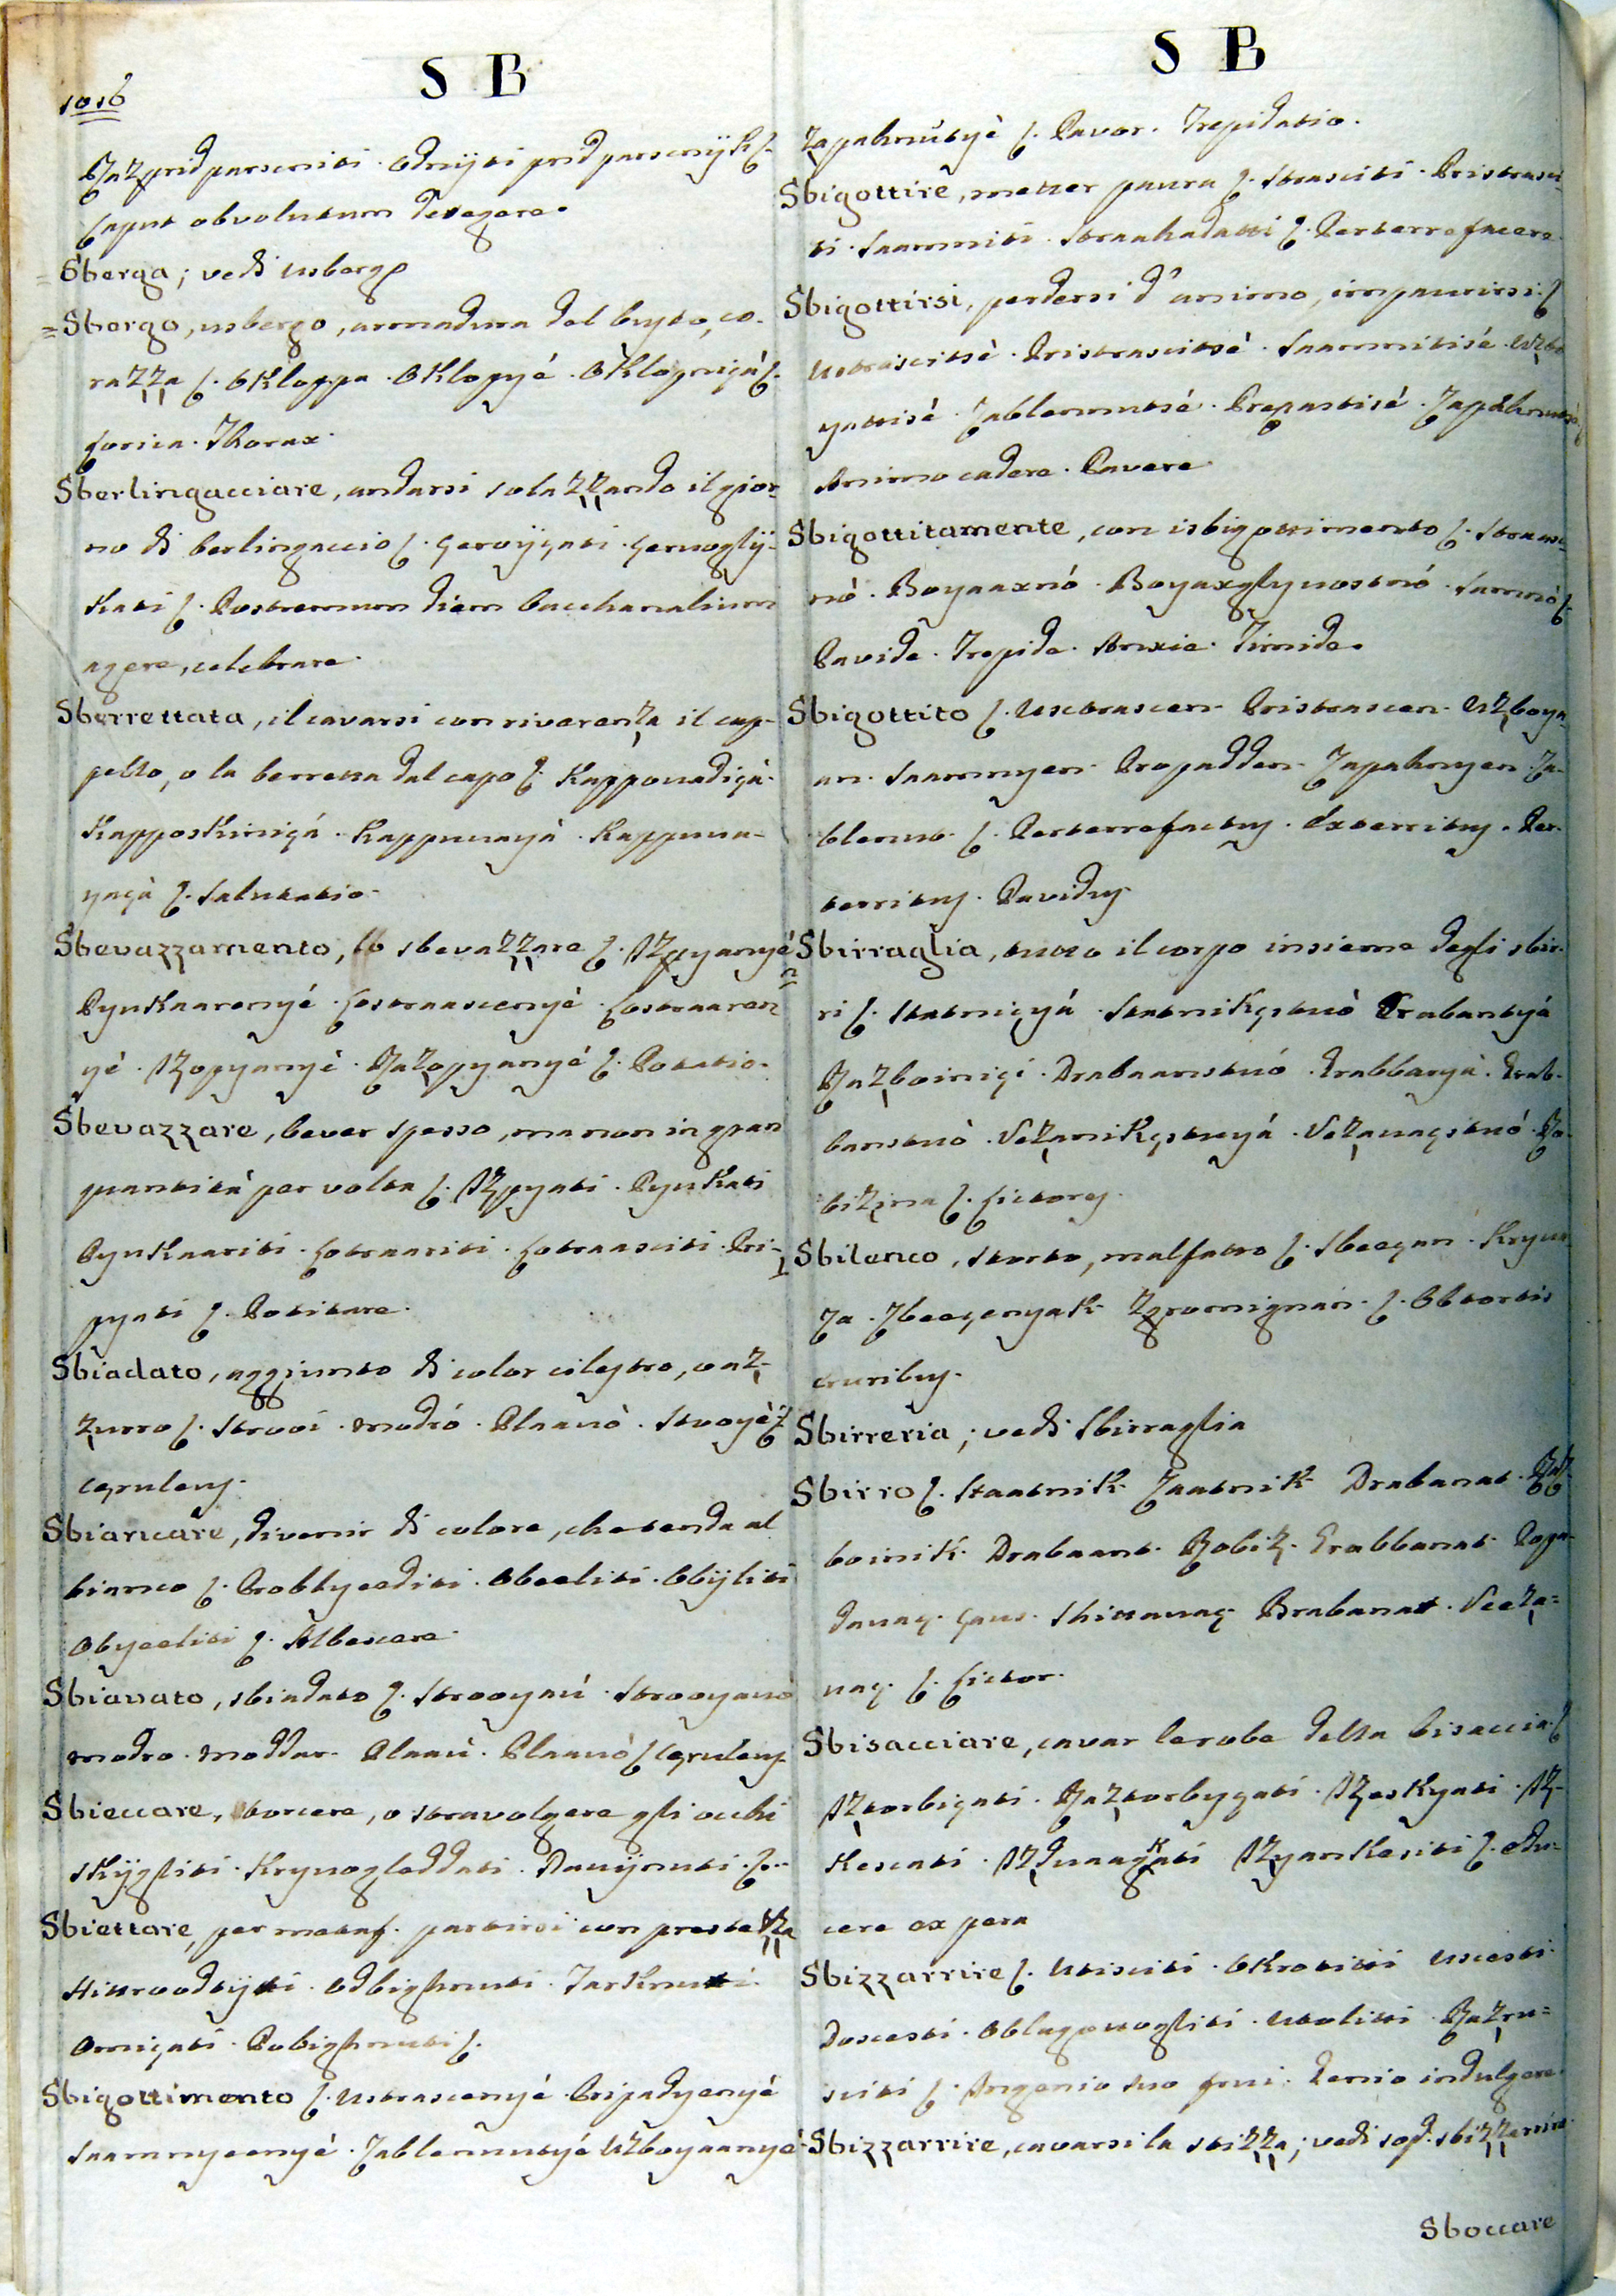 1016
S B
Razpridparscniti. Odriyti pridparscnÿk ſ.
Caput obvolutum detegere.
Sberga; vedi usbergo
Sbergo, usbergo, armadura del busto, co-
razza ſ. Okloppa. Oklopyé. Oklopniçà ſ.
Lorica. Thorax.
Sberlingacciare, andarsi solazzando il gior-
no di berlingaccio ſ.
kati ſ. Postremum diem bacchanalium
agere, celebrare.
Sberrettata, il cavarsi con riverenza il cap-
pello, o la berretta dal capo ſ. Kappouadiçà.
Kapposkiniçá. Kappuuayà. Kappuua-
yaçà ſ. Salutatio.
Sbevazzamento, lo sbevazzare ſ. Izpyanyé
Pyukaarenyé. Lostraascenyé. Lostraaren
yé. Izopyanyé. Razopyanyé ſ. Potatio.
Sbevazzare, bever spesso, ma non in gran
quantità per volta ſ. Izpyati. Pyukati
Pyukaariti. Lotraariti. Lotraasciti. Pri-
pyati ſ. Potitare.
Sbiadato, aggiunto di color cilestro, o az-
zurro ſ. Strooi. Modró. Plaauò. Stvoyè ſ.
Cęruleus.
Sbiancare, divenir di colore, che tenda al
bianco ſ. Problyeediti. Obeeliti. Obÿliti
Obyeeliti ſ. Albescere.
Sbiavato, sbiadato ſ. Strooyaú. Strooyauò
Modro. Moddar. Plaaú. Plaauò ſ. Cęruleus
Sbieccare, torcere, o stravolgere gli occhi
Skÿgliti. Kryuogleddati. Dauÿnuti. ſ.
Sbiettare, per metaf. partirsi con prestezza
Hittroodtÿti. Odbighnuti. Tarknuti.
Omiçati. Pobighnuti ſ.
Sbigottimento ſ. Ustrascenyé. Pripadyenyé
Saamnyeenyé. Zablennutyé Uzboyaanyé
S B
Zapahnútyè ſ. Pavor. Trepidatio.
Sbigottire, metter paura ſ. Strasciti. Pristrasci-
ti. Saamniti. Straahadatti ſ. Perterrefacere.
Sbigottirsi, perdersi d' animo, impaurirsi ſ
Ustrascitsè. Pristrascitsè. Saamnitisé. Uzbo
yattisè. Zablennutsé. Prepastisé. Zapàhnutsè ſ
Animo cadere. Pavere.
Sbigottitamente, con isbigottimento ſ. Straasc-
nò. Boyaaxnó. Boyaxglyuostnó. Samnò ſ.
Pavide. Trepide. Anxie. Timide.
Sbigottito ſ. Usctrascen. Pristrascen. Uzboya-
an. Saamnyen. Propadden. Zapahnyen. Za-
blenut ſ. Perterrefactus. Exterritus. Per-
territus. Pavidus.
Sbirraglia, tutto il corpo insieme degli sbir-
ri ſ. Statniçyá. Statnikçstuò Drabantyá
Razboiniçi. Drabaanstuó. Drabbanyà. Drab-
banstuò. Vezanikçstuyá. Vezauaçstuó. Ro-
bizina ſ. Lictores.
Sbilenco, storto, malfatto ſ. Sbeeçan. Kryua
Za. Zbeeçenyak Zgromignan. ſ. Obtortis
cruribus.
Sbirreria; vedi Sbirraglia
Sbirro ſ. Staatnik Zaatnik Drabanat. Raz-
boinik. Drabaant. Robiz. Drabbanat. Poga-
dauaç. Çaus. Shittauaç. Brabanat. Veeza=
uaç. ſ. Lictor.
Sbisacciare, cavar le robe della bisaccia. ſ
Iztorbiçati. Raztorbyçati. Izeskyati. Iz-
kescati. Izduaagkati Izyankesiti ſ. edu-
cere ex pera
Sbizzarrire ſ. Utisciti. Okrotitii Usesti.
Doscesti. Oblagouogliti. Utolitti. Razru=
sciti ſ. Ingenio suo frui. Genio indulgere.
Sbizzarrire, cavarsi la stizza; vedi sop. sbizzarrire
Sboccare